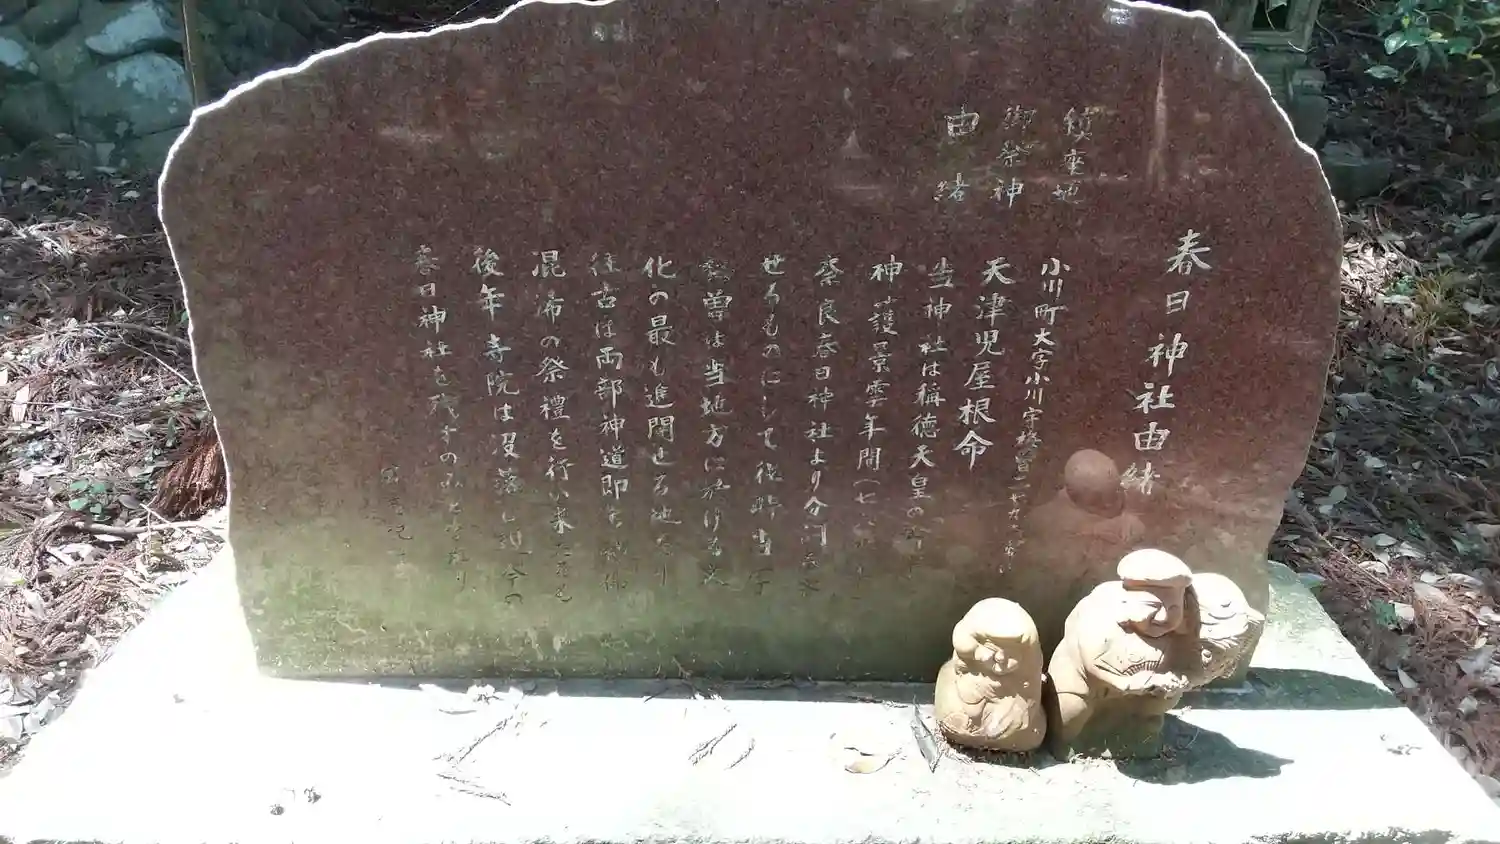 春日神社由緒
鎮座地 小川町大字小川字
御祭神 天津児屋根命
由緒 当神社は稱徳天皇の
神護景雲年間(七
奈良春日神社より分
せるものにして往時当
は当地方に於ける文
化の最も進開せる地なり
往古は両部神道即ち神佛
混淆の祭禮を行い来たるも
後年寺院は没落し現今の
春日神社を残すのみとなれり